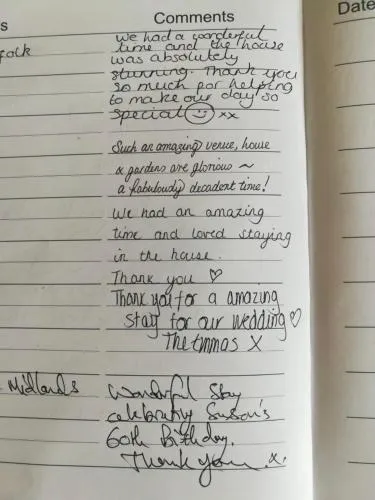 s
Comments
Date
folk
we had a wonderful
time and the house
was absolutely
stunning. Thank you
so much for helping
to make our day so
special ☺ xx
Such an amazing venue, house
& gardens are glorious ~
a fabulously decadent time!
We had an amazing
time and loved staying
in the house.
Thank you ♡
Thank you for a amazing
stay for our wedding ♡
The Emmas X
Midlands
Wonderful Stay
celebrating Susan's
60th Birthday.
Thank you .x.